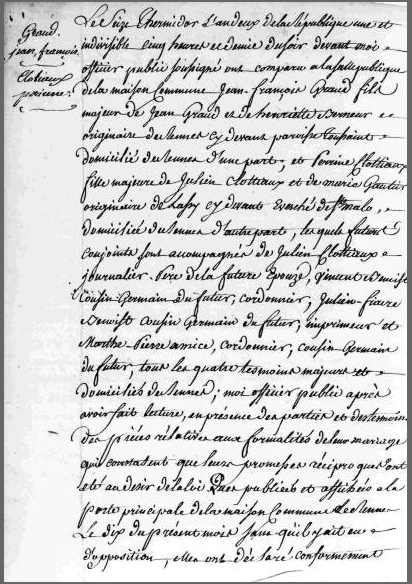 Graud.
jean francois
Clotieaux
perrine.
Le Seize thermidor L'an deux de la République une et
indivisible Cinq heures et demie du soir devant moi
officier public soussigné ont comparu a la salle publique
de la maison Commune Jean-françois Graud fils
majeur de Jean Graud et de henriette
originaire de Rennes cy devant paroisse toussaint
domicilié de Rennes d'une part; et Perrine Clottiaux
fille majeure de Julien Clottiaux et de marie Gautier
originaire de Lassy cy devant Evesché de St malo,
domiciliée de Rennes d'autre part, lesquels futurs
conjoints sont accompagnés de Julien Clottiaux
journalier - Pere de la future Epouze, vincent
Cousin Germain du futur, cordonnier, Julien
Benoist cousin Germain du futur, imprimeur et
Marthe Pierre amice, Cordonnier, cousin Germain
du futur, tous les quatre temoins majeurs et
domiciliés de Rennes; moi officier public après
avoir fait lecture, en presence des parties et des temoins
Des piéces relatives aux formalités de leur mariage
qui constatent que leurs promesses reciproques ont
eté au desir de la loi publiées et affichées a la
porte principale de la maison Commune de Rennes
Le dix du present mois sans qu'il y ait eu
d'opposition, elles ont déclaré conformement